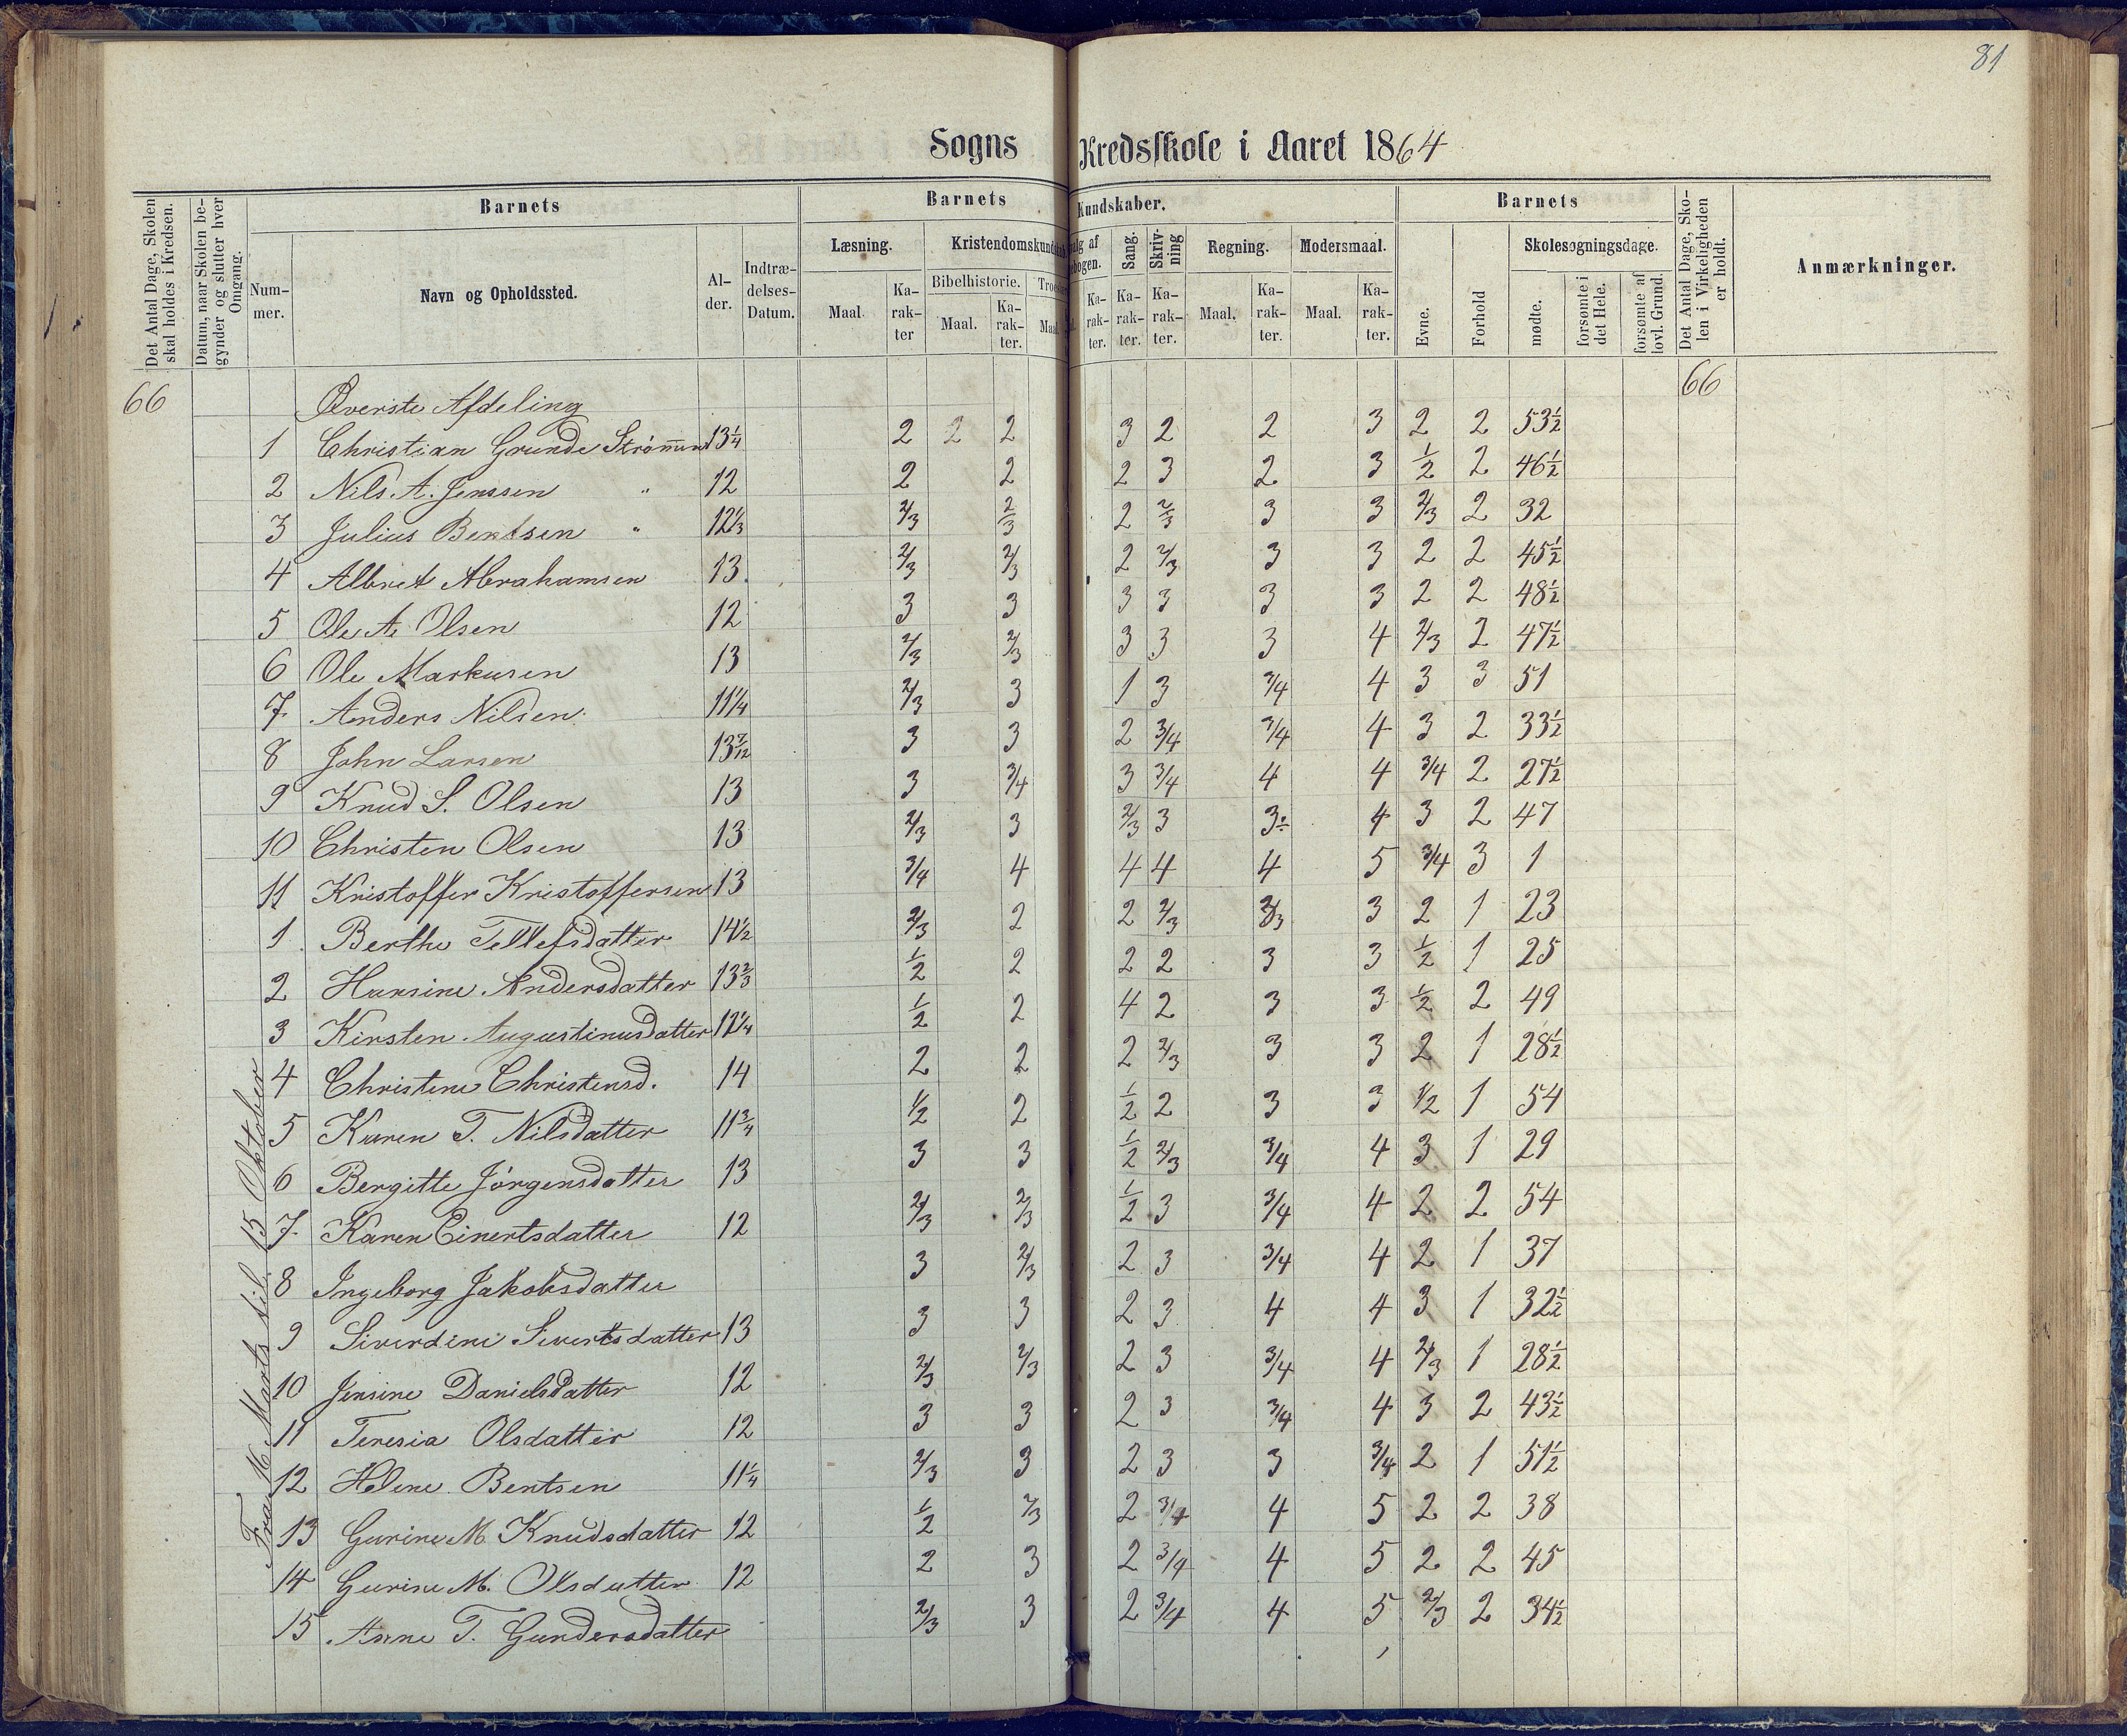 81
Sogns Kredsskole i Aaret 1864
Det Antal Dage, Skolen skal holdes i Kredsen.
Datum, naar Skolen begynder og slutter hver Omgang.
Barnets
Barnets Kundskaber.
Barnets
Det Antal Dage, Skolen i Virkeligheden er holdt.
Anmærkninger.
Nummer.
Navn og Opholdssted.
Alder.
Indtrædelses-Datum.
Læsning.
Kristendomskundskab
Bibelhistorie.
Sang.
Skrivning
Regning.
Modersmaal.
Evne.
Forhold
Skolesøgningsdage.
Maal. Karakter Maal. Karakter. Karakter. Karakter. Karakter. Maal. Karakter. Maal. Karakter.
mødte.
forsømte i det Hele.
forsømte af lovl. Grund.
66 Øverste Afdeling 66
Fra 16 Marts til 15 Oktober
1 Christian Grunde Strømmen 13 1/4 2 2 2 3 2 2 3 2 2 53 1/2
2 Nils A. Jenssen " 12 2 2 2 3 2 3 1/2 2 46 1/2
3 Julius Bentsen " 12 1/3 2/3 2/3 2 2/3 3 3 2/3 2 32
4 Albret Abrahamsen 13 2/3 2/3 2 2/3 3 3 2 2 45 1/2
5 Ole A. Olsen 12 3 3 3 3 3 3 2 2 48 1/2
6 Ole Markusen 13 2/3 2/3 3 3 3 4 2/3 2 47 1/2
7 Anders Nilsen 11 1/4 2/3 3 1 3 3/4 4 3 3 51
8 John Larsen 13 7/12 3 3 2 3/4 3/4 4 3 2 33 1/2
9 Knud S. Olsen 13 3 3/4 3 3/4 4 4 3/4 2 27 1/2
10 Christen Olsen 13 2/3 3 2/3 3 3 4 3 2 47
11 Kristoffer Kristoffersen 13 3/4 4 4 4 4 5 3/4 3 1
1 Berthe Tellefsdatter 14 1/2 2/3 2 2 2/3 2/3 3 2 1 23
2 Hansine Andersdatter 13 2/3 1/2 2 2 2 3 3 1/2 1 25
3 Kirsten Augustinusdatter 12 1/4 1/2 2 4 2 3 3 1/2 2 49
4 Christine Christensd. 14 2 2 2 2/3 3 3 2 1 28 1/2
5 Karen T. Nilsdatter 11 3/4 1/2 2 1/2 2 3 3 1/2 1 54
6 Bergitte Jørgensdatter 13 3 3 1/2 2/3 3/4 4 3 1 29
7 Karen Einertsdatter 12 2/3 2/3 1/2 3 3/4 4 2 2 54
8 Ingeborg Jakobsdatter 3 2/3 2 3 3/4 4 2 1 37
9 Siverdine Sivertsdatter 13 3 3 2 3 4 4 3 1 32 1/2
10 Jensine Danielsdatter 12 2/3 2/3 2 3 3/4 4 2/3 1 28 1/2
11 Teresia Olsdatter 12 3 3 2 3 3/4 4 3 2 43 1/2
12 Helene Bentsen 11 1/4 2/3 3 2 3 3 3/4 2 1 51 1/2
13 Gurine M. Knudsdatter 12 1/2 2/3 2 3/4 4 5 2 2 38
14 Gurine M. Olsdatter 12 2 3 2 3/4 4 5 2 2 45
15 Anne T. Gundersdatter 2/3 3 2 3/4 4 5 2/3 2 34 1/2